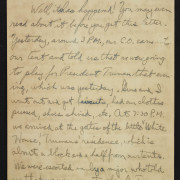 Well, it has happened! You may even
read about it before you get this letter.
Yesterday, around 3 P.M., our C.O. came to
our tent and told us that we were going
to play for President Truman that even-
ing, which was yesterday. We and I
went out and got haircuts, had our clothes
pressed, shoes shined, etc. At 7:30 P.M.
we arrived at the gates of the Little White
House, Truman's residence, which is
about a block and a half from our tents.
We were escorted in by a major who told